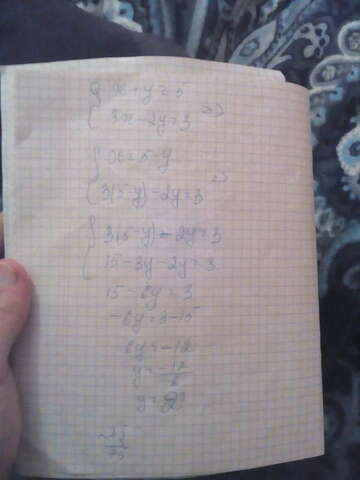 { x + y = 5
{ 3x - 2y = 3 =>
{ x = 5 - y
{ 3(5-y) - 2y = 3 =>
{ 3(5-y) - 2y = 3
{ 15 - 3y - 2y = 3
15 - 6y = 3
-6y = 3 - 15
6y = -12
y = -12/6